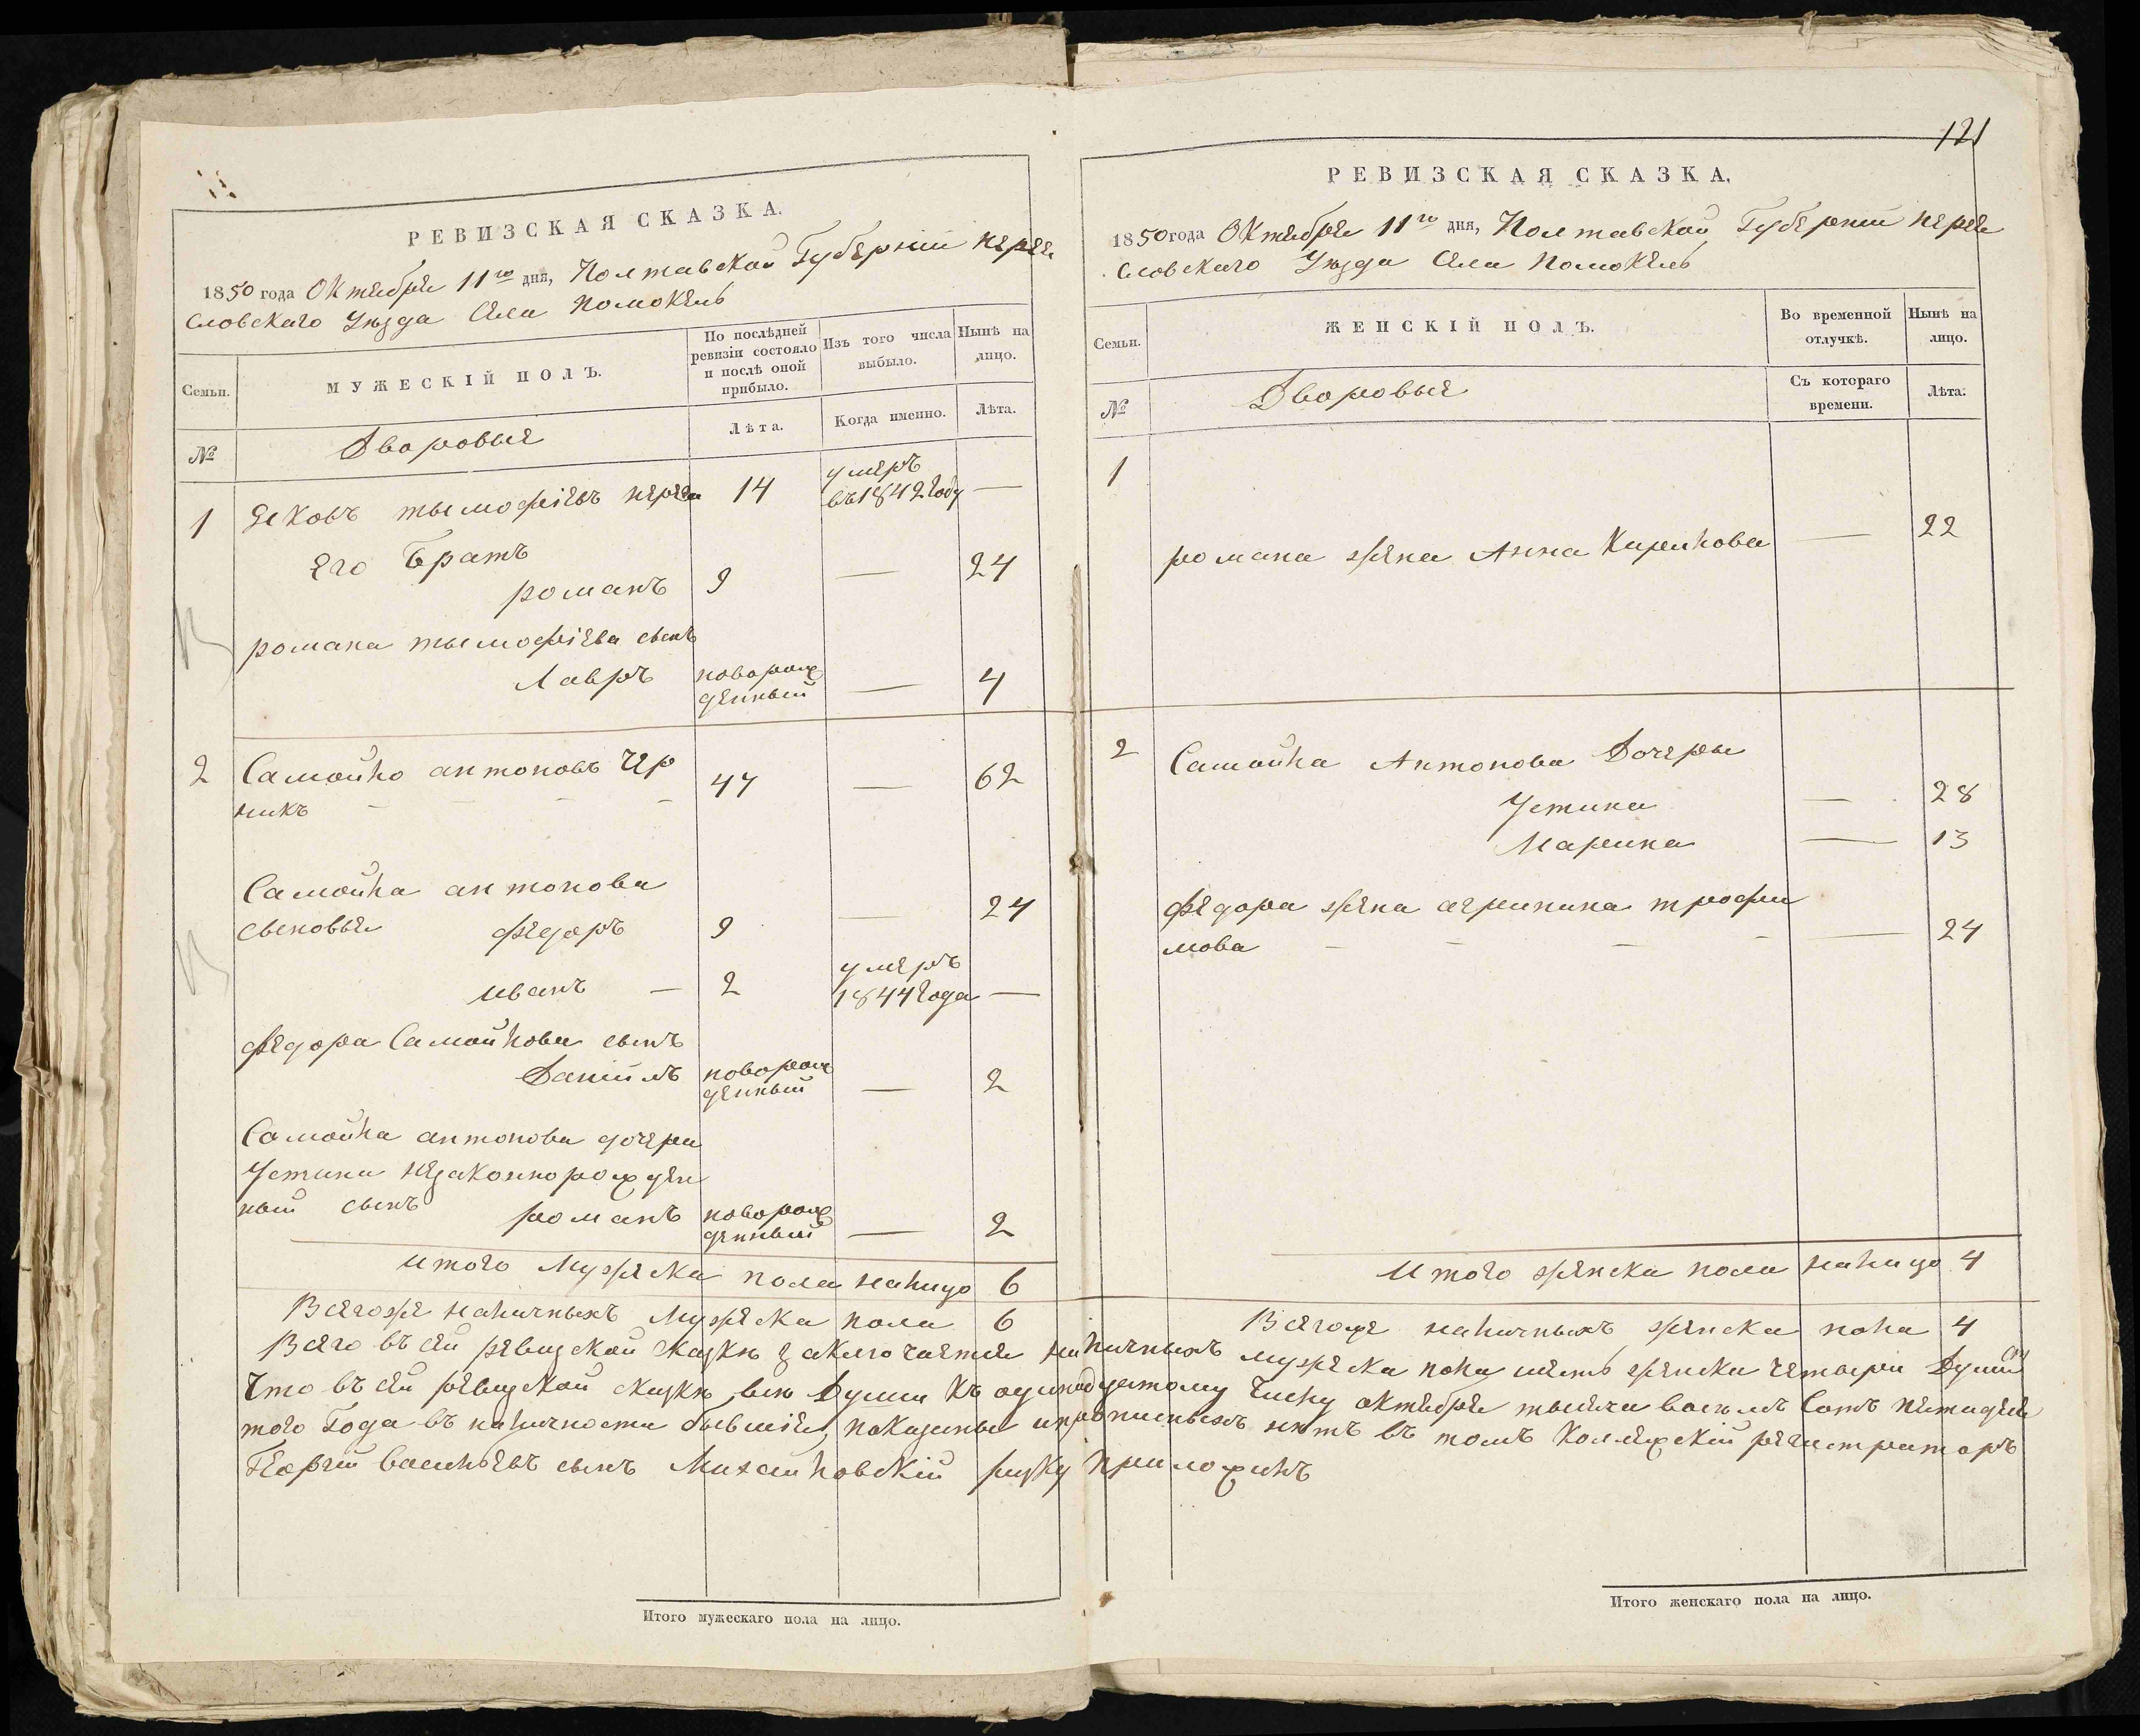 РЕВИЗСКАЯ СКАЗКА.
1850 года Октября 11го дня, Полтавской Губерніи Перея
словскаго Уезда Села Помокель
Семьи.
МУЖЕСКІЙ ПОЛЪ.
По последней
ревизіи состояло
и после оной
прибыло.
Изъ того числа
выбыло.
Ныне на
лицо.
№
Дворовые
Лета.
Когда именно.
Лета.
1 Яковъ тымофіевъ 14 умеръ
въ 1842 году —
Его братъ
романъ 9 — 24
романа тымофіева сынъ
Лавръ новорож
денный — 4
2 Самойло антоновъ Чер
никъ - - - - 47 — 62
Самойла антонова
сыновья федоръ 9 — 24
иванъ — 2 умеръ
1844 года —
федора Самойлова сынъ
Даніилъ новорож
денный — 2
Самойла антонова дочери
Устины незаконнорожден
ный сынъ романъ новорож
денный — 2
итого Мужеска пола налицо 6
Всегоже наличныхъ Мужеска пола 6
РЕВИЗСКАЯ СКАЗКА.
121
1850 года Октября 11го дня, Полтавской Губерніи Перея
словскаго Уезда Села Помокель
Семьи.
ЖЕНСКІЙ ПОЛЪ.
Во временной
отлучкѣ.
Нынѣ на
лицо.
№
Дворовые
Съ котораго
времени.
Лѣта.
1
романа жена Анна Кирилова — 22
2 Самойла Антонова Дочеры
Устина — 28
Марина — 13
федора жена агрипина трофи
мова - - - - — 24
Итого женска пола налицо 4
Всегоже наличныхъ женска пола 4
Всего въ сей ревизской сказкѣ заключается наличныхъ мужеска пола шесть женска четыри Души
Что въ сей ревизской сказкѣ все Души къ одинадцатому числу октября тысяча восемь сотъ пятидеся
того Года въ наличности бывшія, показаны и прописныхъ нѣтъ въ томъ Коллежскій регистраторъ
Георгій васильевъ сынъ Михайловскій руку приложилъ
Итого мужескаго пола на лицо.
Итого женскаго пола на лицо.